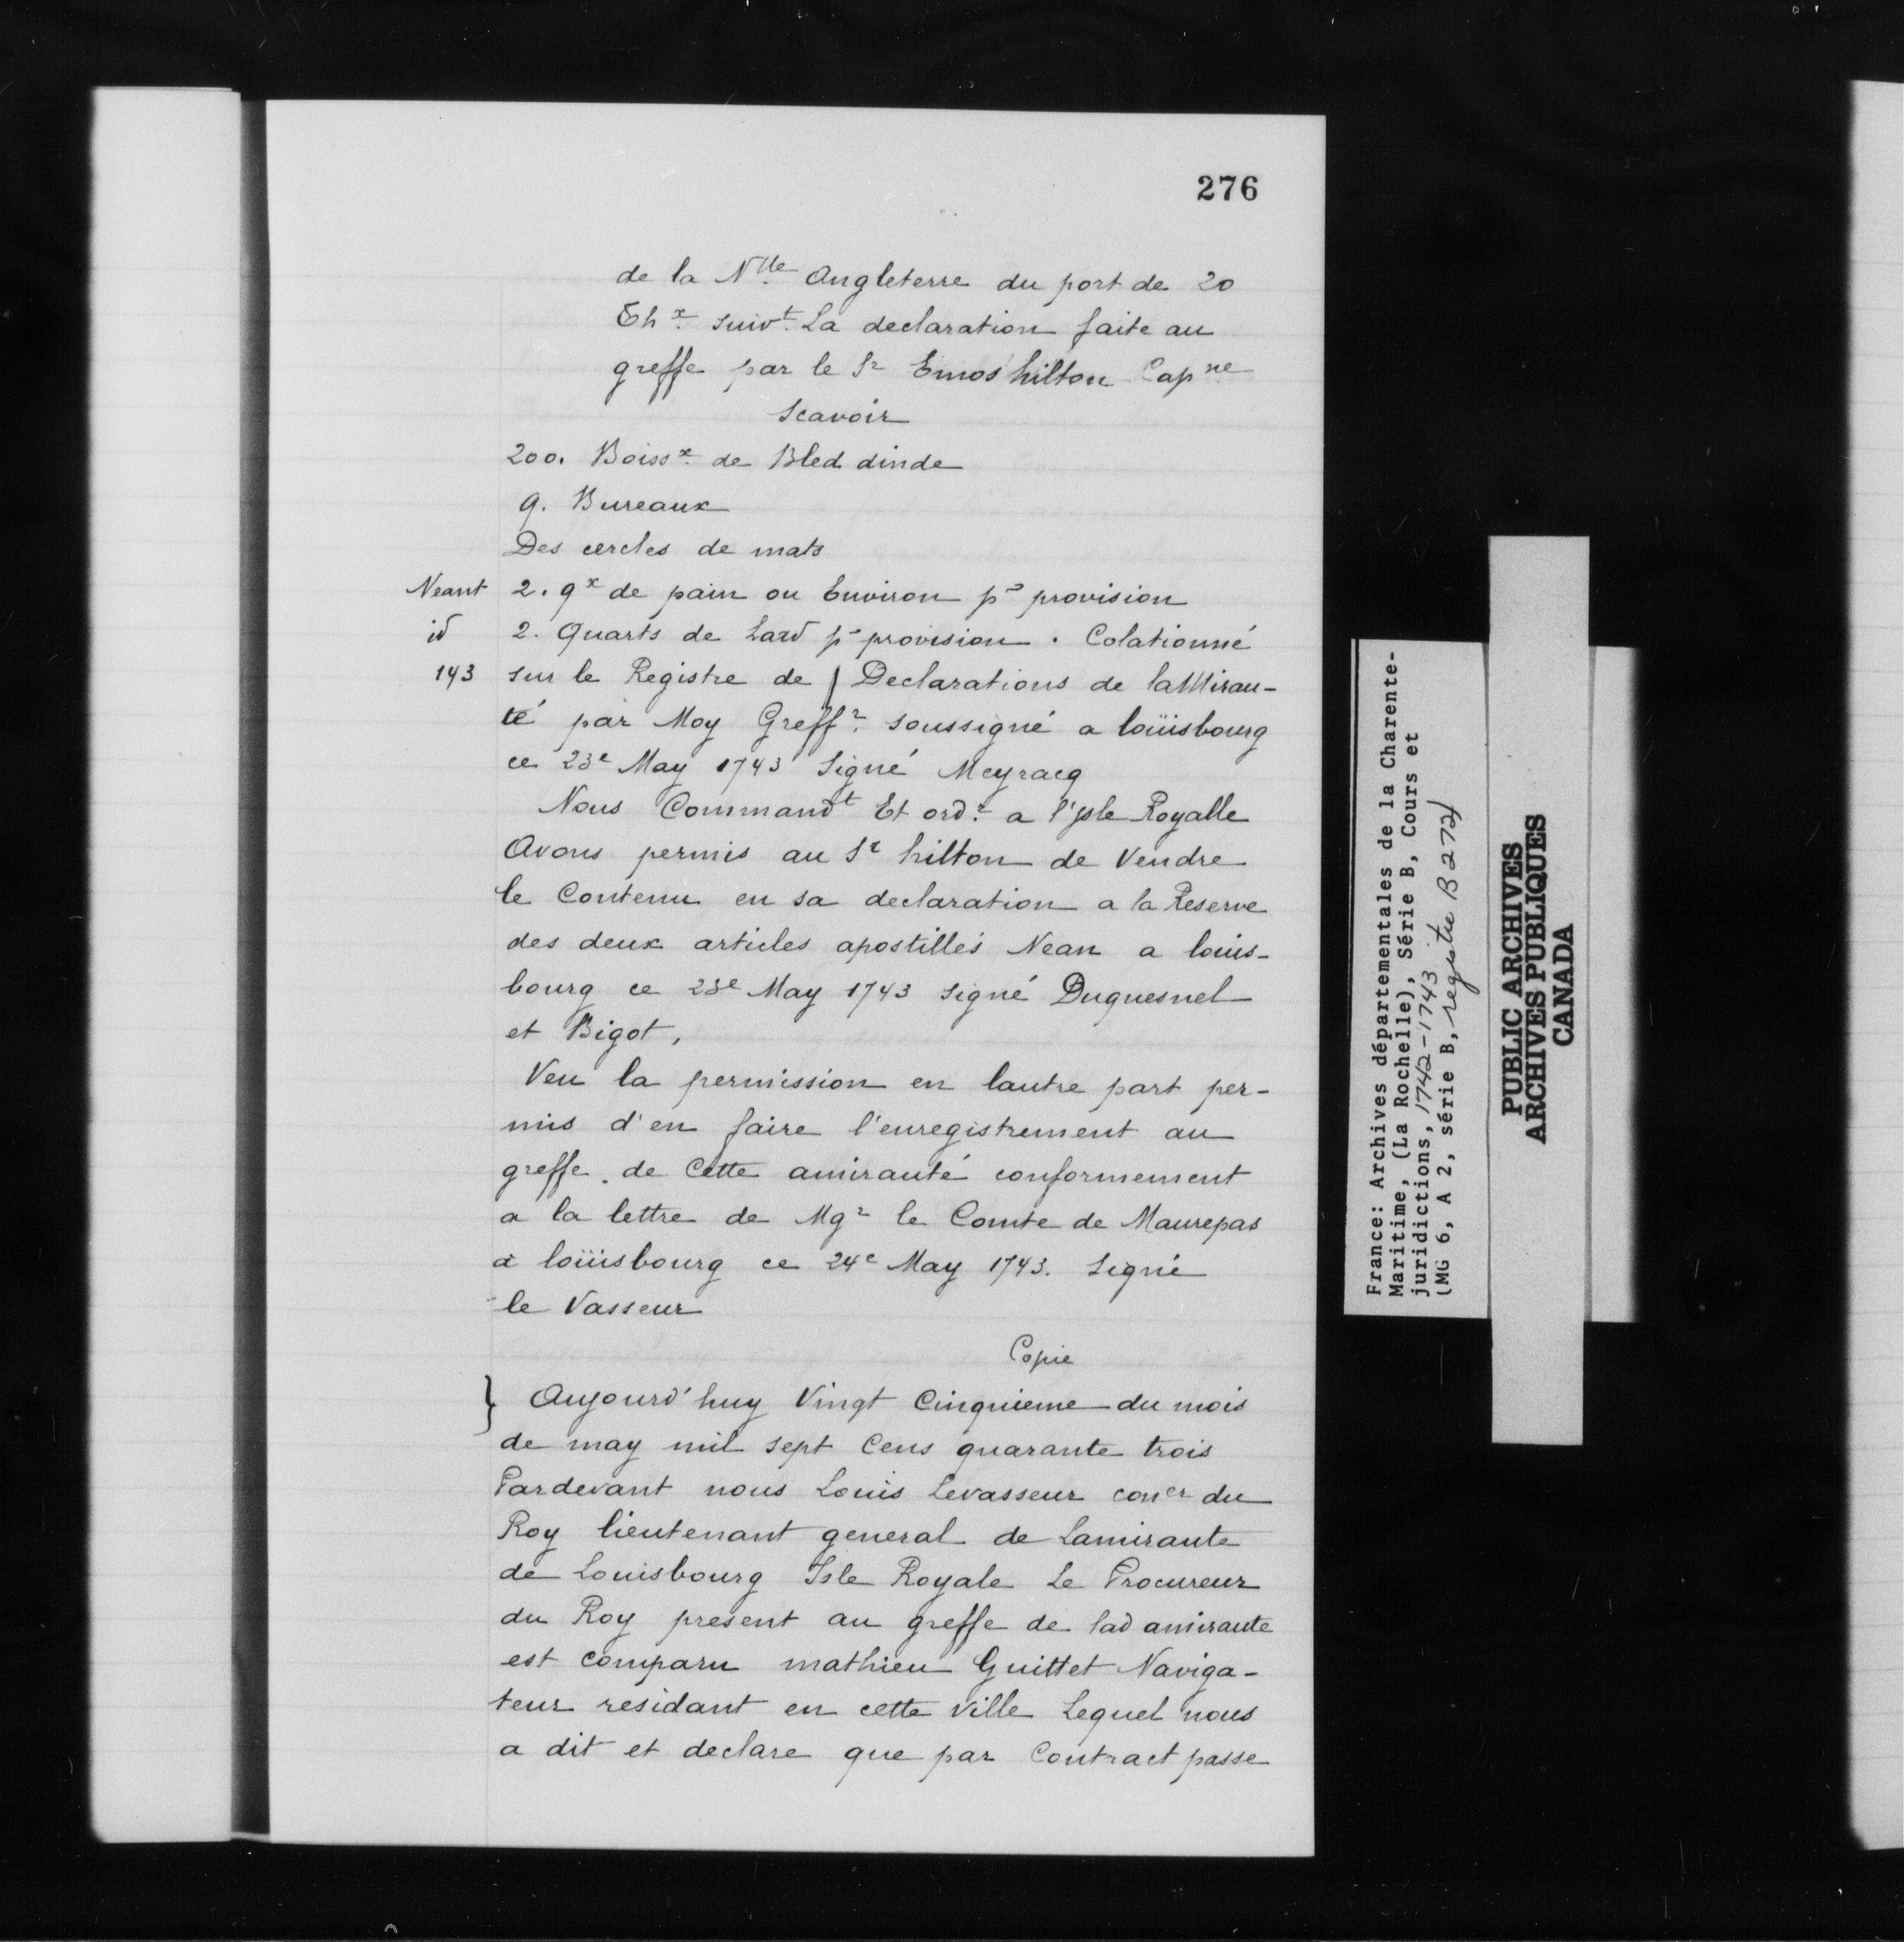 276
de la Nlle Angleterre du port de 20
Thx suivt La declaration faite au
greffe par le Sr Emos hilton Capne
Scavoir
200. Boissx de Bled dinde
9. Bureaux
Des cercles de mats
Neant 2. qx de pain ou Environ pr provision
id 2. Quarts de Lard pr provision. Colationné
143 sur le Registre de | Declarations de laMirau-
té par Moy Greffr soussigné a loüisbourg
ce 23e May 1743 Signé Meyracq
Nous Commandt Et ordr a l'Isle Royalle
Avons permis au Sr hilton de Vendre
le Contenu en sa declaration a la Reserve
des deux articles apostillés Nean a louis-
bourg ce 23e May 1743 signé Duquesnel
et Bigot,
Veu la permission en lautre part per-
mis d'en faire l'enregistrement au
greffe de Cette amirauté conformement
a la lettre de Mgr le Comte de Maurepas
à loüisbourg ce 24e May 1743. Signé
le Vasseur
Copie
} Aujourd'huy Vingt Cinquieme du mois
de may mil sept Cens quarante trois
Pardevant nous Louis Levasseur coner du
Roy lieutenant general de Lamiraute
de Louisbourg Isle Royale Le Procureur
du Roy present au greffe de lad amiraute
est comparu mathieu Guittet Naviga-
teur residant en cette Ville Lequel nous
a dit et declare que par Contract passe
France: Archives départementales de la Charente-
Maritime, (La Rochelle), Série B, Cours et
juridictions, 1742-1743
(MG 6, A 2, série B, registre B 272)
PUBLIC ARCHIVES
ARCHIVES PUBLIQUES
CANADA